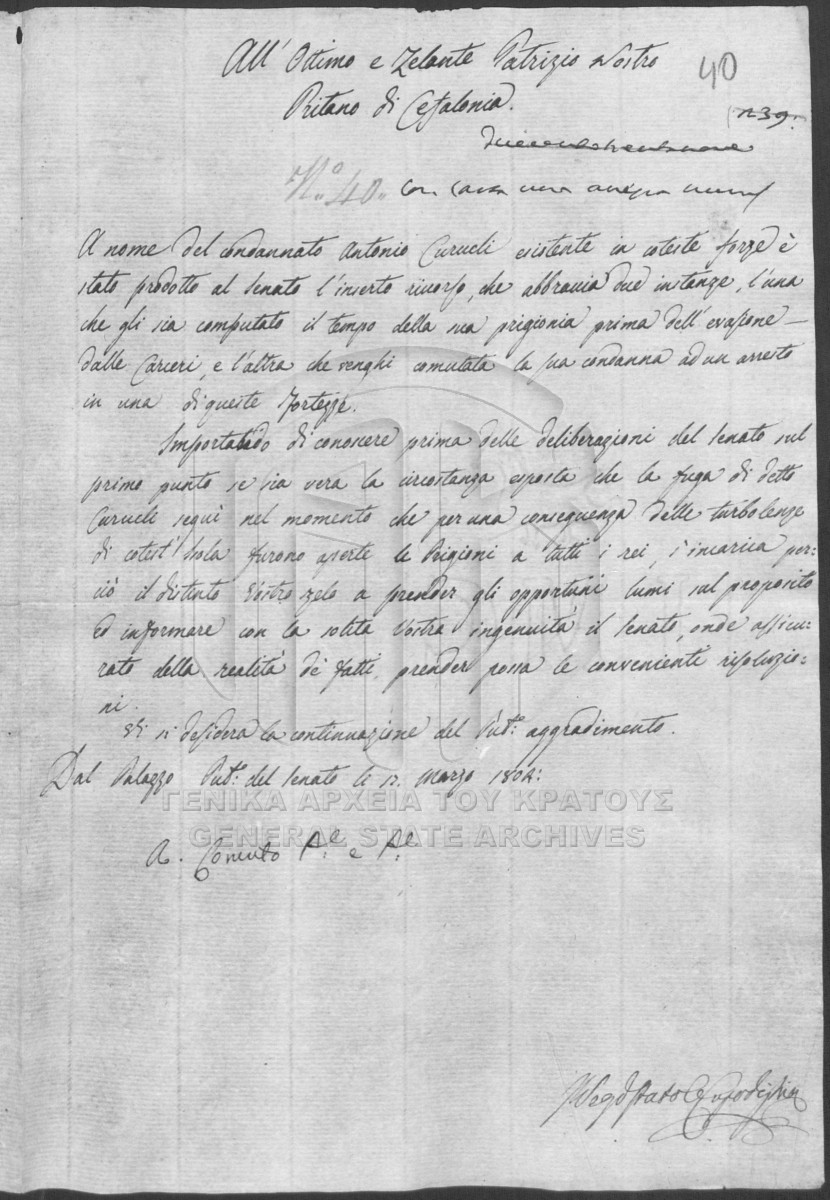 All' Ottimo e Zelante Patrizio Nostro
Pritano di Cefalonia.
40
239.
Nº 40.
A nome del condannato Antonio Curucli esistente in coteste forze è
stato prodotto al Senato l'inserto ricorso, che abbraccia due instanze, l'una
che gli sia computato il tempo della sua prigionia prima dell'evasione
dalle Carceri, e l'altra che venghi comutata la sua condanna ad un arresto
in una di queste Fortezze.
Importando di conoscere prima delle deliberazioni del Senato sul
primo punto se sia vera la circostanza esposta che la fuga di detto
Curucli seguì nel momento che per una conseguenza delle turbolenze
di cotest' Isola furono aperte le Prigioni a tutti i rei, s'incarica per-
ciò il distinto Vostro zelo a prender gli opportuni lumi sul proposito
ed informare con la solita Vostra ingenuità il Senato, onde assicu-
rato della realità de' fatti, prender possa le convenienti risoluzio-
ni.
Vi si desidera la continuazione del Pub.º aggradimento.
Dal Palazzo Pub.º del Senato li 12. Marzo 1802:
A. Comuto P.e e P.e
ΓΕΝΙΚΑ ΑΡΧΕΙΑ ΤΟΥ ΚΡΑΤΟΥΣ
GENERAL STATE ARCHIVES